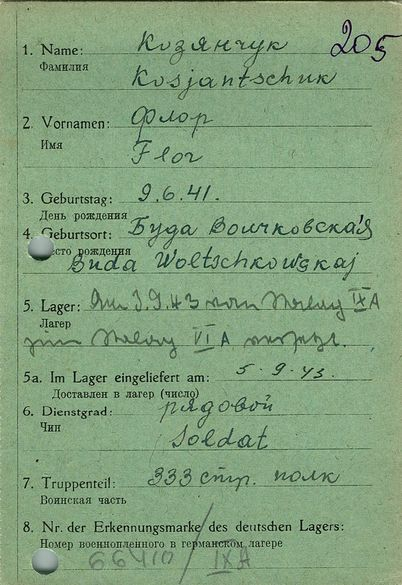 205
1. Name: Козянчук
Фамилия
Kosjantschuk
2. Vornamen: Флор
Имя
Flor
3. Geburtstag: 9.6.41.
День рождения
4. Geburtsort: Буда Волчковская
место рождения
Buda Woltschkowskaj
5. Lager: Am 3.9.43 vom Stalag IX A
Лагер
zum Stalag VI A versetzt.
5a. Im Lager eingeliefert am: 5.9.43.
Доставлен в лагер (число)
6. Dienstgrad: рядовой
Чин
Soldat
7. Truppenteil: 333 стр. полк
Воинская часть
8. Nr. der Erkennungsmarke des deutschen Lagers:
Номер военнопленного в германском лагере
/ IX A